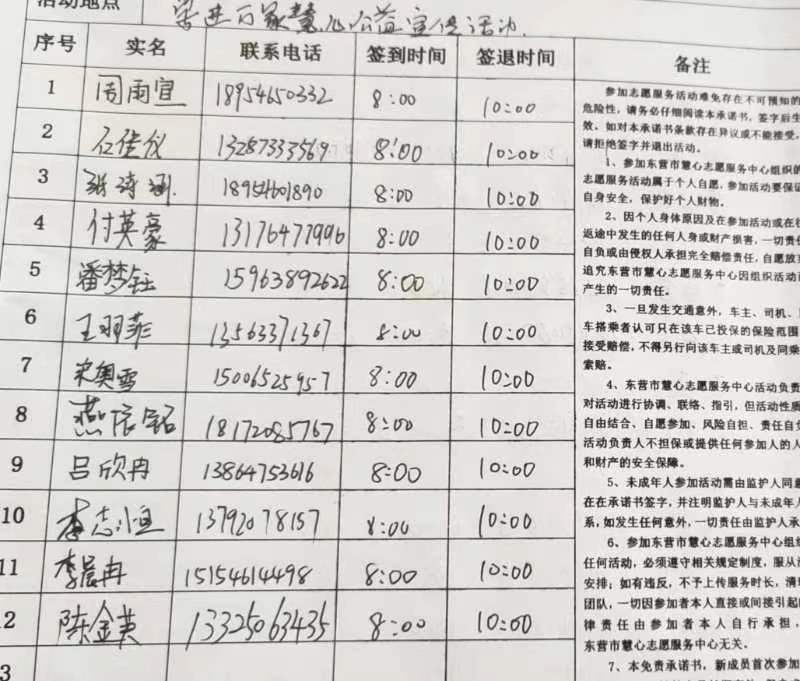 活动地点 走进万家慧心公益宣传活动
序号 实名 联系电话 签到时间 签退时间 备注
1 周雨宣 18954650332 8:00 10:00
2 石佳仪 13287333569 8:00 10:00
3 张诗涵 18954601890 8:00 10:00
4 付英豪 13176477996 8:00 10:00
5 潘梦钰 15963892622 8:00 10:00
6 王羽菲 13563371367 8:00 10:00
7 宋奥雪 15006525957 8:00 10:00
8 燕 铭 18172085767 8:00 10:00
9 吕欣冉 13864753616 8:00 10:00
10 李志恒 13792078157 8:00 10:00
11 李晨冉 15154614498 8:00 10:00
2 陈金英 13325063435 8:00 10:00
3
参加志愿服务活动难免存在不可预知的
危险性，请务必仔细阅读本承诺书，签字后生
效。如对本承诺书条款存在异议或不能接受，
请拒绝签字并退出活动。
1、参加东营市慧心志愿服务中心组织的
志愿服务活动属于个人自愿，参加活动要保证
自身安全，保护好个人财物。
2、因个人身体原因及在参加活动或在往
返途中发生的任何人身或财产损害，一切责任
自负或由侵权人承担完全赔偿责任，自愿放弃
追究东营市慧心志愿服务中心因组织活动而
产生的一切责任。
3、一旦发生交通意外，车主、司机、
车搭乘者认可只在该车已投保的保险范围
接受赔偿，不得另行向该车主或司机及同乘
索赔。
4、东营市慧心志愿服务中心活动负责
对活动进行协调、联络、指引，但活动性质
自由结合、自愿参加、风险自担、责任自负
活动负责人不担保或提供任何参加人的人
和财产的安全保障。
5、未成年人参加活动需由监护人同意
在在承诺书签字，并注明监护人与未成年人
系，如发生任何意外，一切责任由监护人承
6、参加东营市慧心志愿服务中心组织
任何活动，必须遵守相关规定制度，服从
安排；如有违反，不予上传服务时长，清
团队，一切因参加者本人直接或间接引起
律责任由参加者本人自行承担，
东营市慧心志愿服务中心无关。
7、本免责承诺书，新成员首次参加